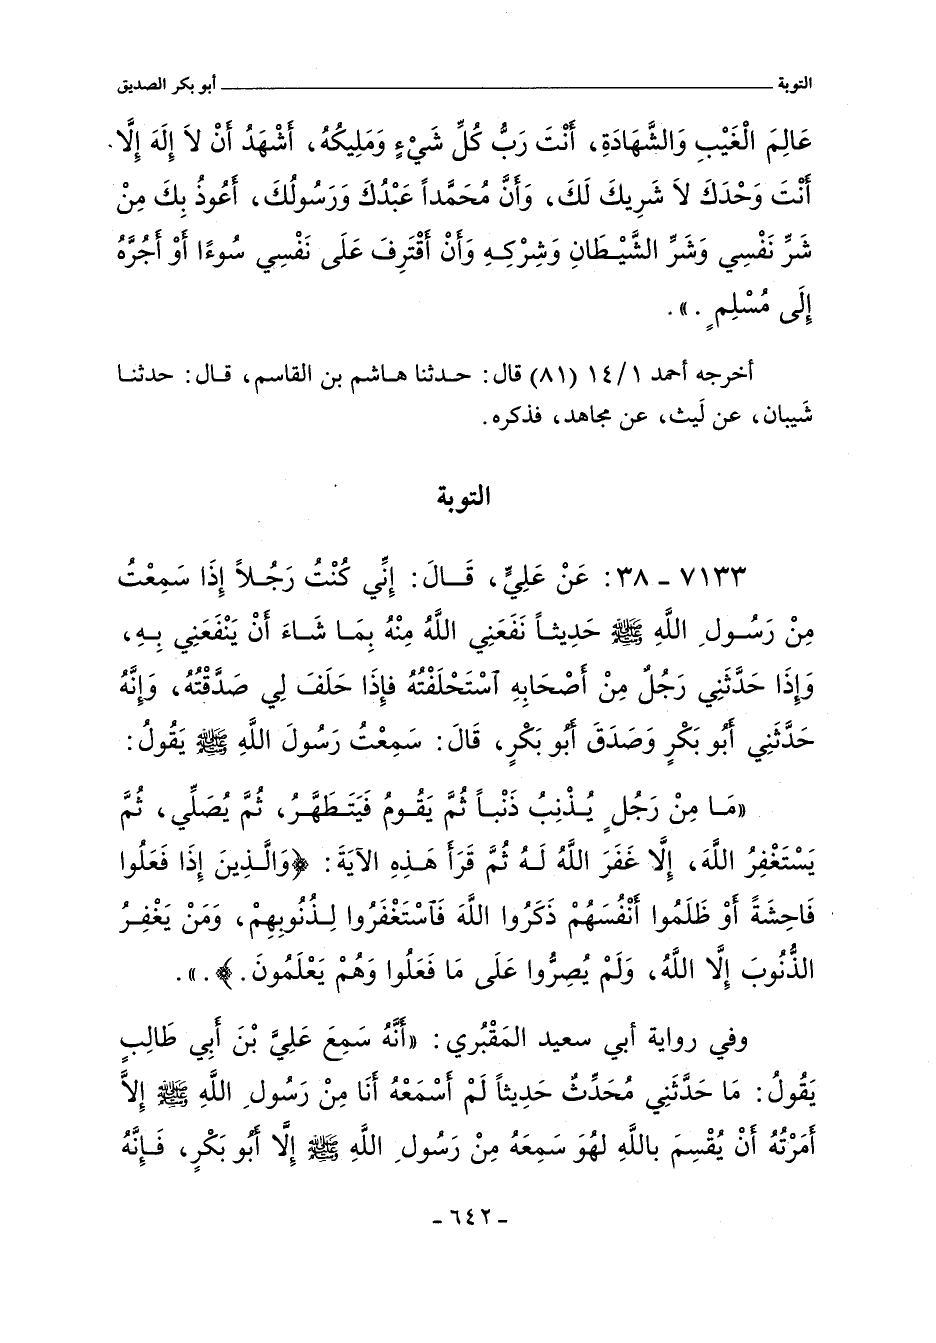 التوبة ــــــــــــــــــــ أبو بكر الصديق
عَالِمَ الْغَيْبِ وَالشَّهَادَةِ، أَنْتَ رَبُّ كُلِّ شَيْءٍ وَمَلِيكُهُ، أَشْهَدُ أَنْ لاَ إِلَهَ إِلَّا
أَنْتَ وَحْدَكَ لاَ شَرِيكَ لَكَ، وَأَنَّ مُحَمَّداً عَبْدُكَ وَرَسُولُكَ، أَعُوذُ بِكَ مِنْ
شَرِّ نَفْسِي وَشَرِّ الشَّيْطَانِ وَشِرْكِهِ وَأَنْ أَقْتَرِفَ عَلَى نَفْسِي سُوءًا أَوْ أَجُرَّهُ
إِلَى مُسْلِمٍ .».
أخرجه أحمد ١/١٤ (٨١) قال: حدثنا هاشم بن القاسم، قال: حدثنا
شَيبان، عن لَيث، عن مجاهد، فذكره.
التوبة
٧١٣٣ - ٣٨: عَنْ عَلِيٍّ، قَالَ: إِنِّي كُنْتُ رَجُلاً إِذَا سَمِعْتُ
مِنْ رَسُولِ اللَّهِ ﷺ حَدِيثاً نَفَعَنِي اللَّهُ مِنْهُ بِمَا شَاءَ أَنْ يَنْفَعَنِي بِهِ،
وَإِذَا حَدَّثَنِي رَجُلٌ مِنْ أَصْحَابِهِ ٱسْتَحْلَفْتُهُ فإِذَا حَلَفَ لِي صَدَّقْتُهُ، وَإِنَّهُ
حَدَّثَنِي أَبُو بَكْرٍ وَصَدَقَ أَبُو بَكْرٍ، قَالَ: سَمِعْتُ رَسُولَ اللَّهِ ﷺ يَقُولُ:
«مَا مِنْ رَجُلٍ يُذْنِبُ ذَنْباً ثُمَّ يَقُومُ فَيَتَطَهَّرُ، ثُمَّ يُصَلِّي، ثُمَّ
يَسْتَغْفِرُ اللَّهَ، إِلَّا غَفَرَ اللَّهُ لَهُ ثُمَّ قَرَأَ هَذِهِ الآيَةَ: ﴿وَالَّذِينَ إِذَا فَعَلُوا
فَاحِشَةً أَوْ ظَلَمُوا أَنْفُسَهُمْ ذَكَرُوا اللَّهَ فَٱسْتَغْفَرُوا لِذُنُوبِهِمْ، وَمَنْ يَغْفِرُ
الذُّنُوبَ إِلَّا اللَّهُ، وَلَمْ يُصِرُّوا عَلَى مَا فَعَلُوا وَهُمْ يَعْلَمُونَ.﴾.».
وفي رواية أبي سعيد المَقْبُري: «أَنَّهُ سَمِعَ عَلِيَّ بْنَ أَبِي طَالِبٍ
يَقُولُ: مَا حَدَّثَنِي مُحَدِّثٌ حَدِيثاً لَمْ أَسْمَعْهُ أَنَا مِنْ رَسُولِ اللَّهِ ﷺ إِلاَّ
أَمَرْتُهُ أَنْ يُقْسِمَ بِاللَّهِ لَهُوَ سَمِعَهُ مِنْ رَسُولِ اللَّهِ ﷺ إِلَّا أَبُو بَكْرٍ، فَإِنَّهُ
- ٦٤٢ -